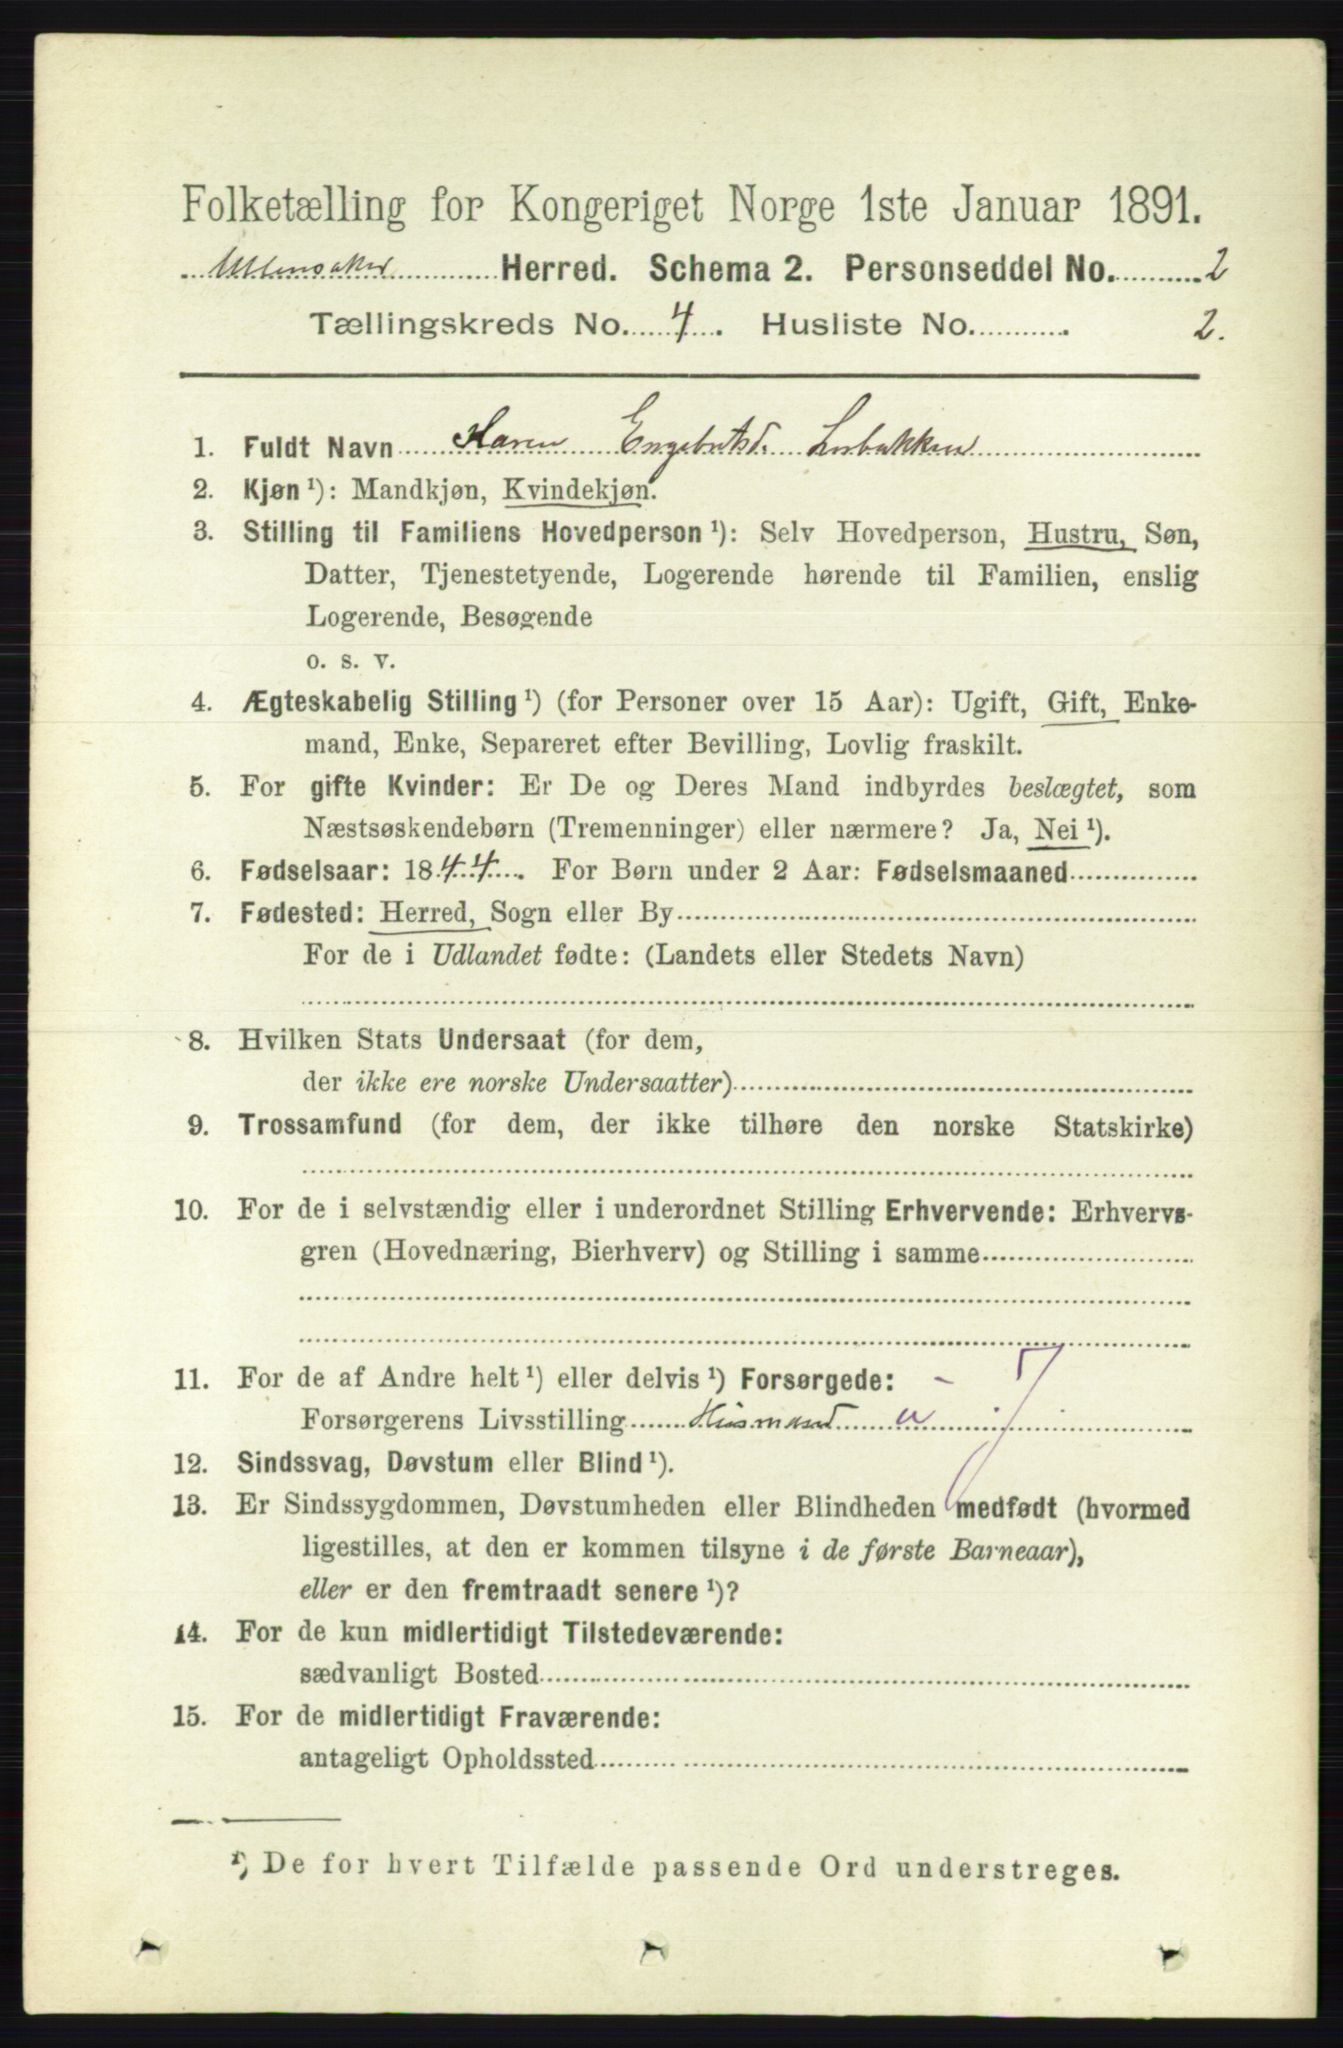 Folketælling for Kongeriget Norge 1ste Januar 1891.
Ullensaker Herred. Schema 2. Personseddel No. 2
Tællingskreds No. 4. Husliste No. 2.
1. Fuldt Navn Karen Engebretsd.
2. Kjøn ¹): Mandkjøn, Kvindekjøn.
3. Stilling til Familiens Hovedperson ¹): Selv Hovedperson, Hustru, Søn,
Datter, Tjenestetyende, Logerende hørende til Familien, enslig
Logerende, Besøgende
o. s. v.
4. Ægteskabelig Stilling ¹) (for Personer over 15 Aar): Ugift, Gift, Enke-
mand, Enke, Separeret efter Bevilling, Lovlig fraskilt.
5. For gifte Kvinder: Er De og Deres Mand indbyrdes beslægtet, som
Næstsøskendebørn (Tremenninger) eller nærmere? Ja, Nei ¹).
6. Fødselsaar: 1844. For Børn under 2 Aar: Fødselsmaaned
7. Fødested: Herred, Sogn eller By
For de i Udlandet fødte: (Landets eller Stedets Navn)
8. Hvilken Stats Undersaat (for dem,
der ikke ere norske Undersaatter)
9. Trossamfund (for dem, der ikke tilhøre den norske Statskirke)
10. For de i selvstændig eller i underordnet Stilling Erhvervende: Erhvervs-
gren (Hovednæring, Bierhverv) og Stilling i samme
11. For de af Andre helt ¹) eller delvis ¹) Forsørgede: -
Forsørgerens Livsstilling Husmand
12. Sindssvag, Døvstum eller Blind ¹).
13. Er Sindssygdommen, Døvstumheden eller Blindheden medfødt (hvormed
ligestilles, at den er kommen tilsyne i de første Barneaar),
eller er den fremtraadt senere ¹)?
14. For de kun midlertidigt Tilstedeværende:
sædvanligt Bosted
15. For de midlertidigt Fraværende:
antageligt Opholdssted
¹) De for hvert Tilfælde passende Ord understreges.